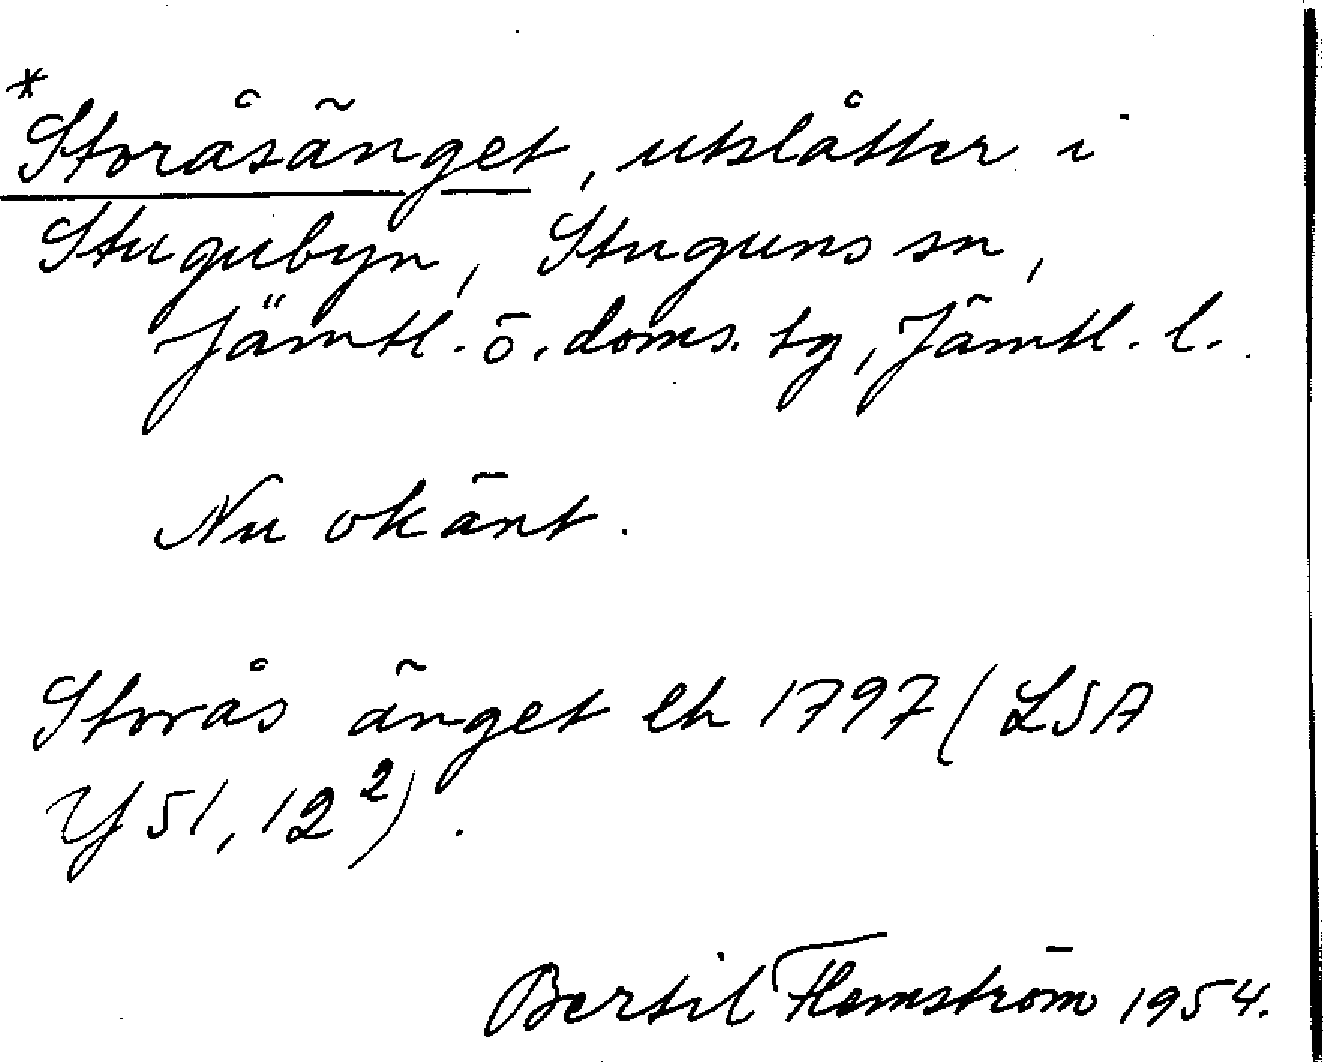 *Storåsänget, utslåtter i
Stugubyn, Stuguns sn,
Jämtl. ö. doms. tg, Jämtl. l.
Nu okänt.
Storås änget eh 1797 (LSA
Y 51, 12²).
Bertil Flemström 1954.